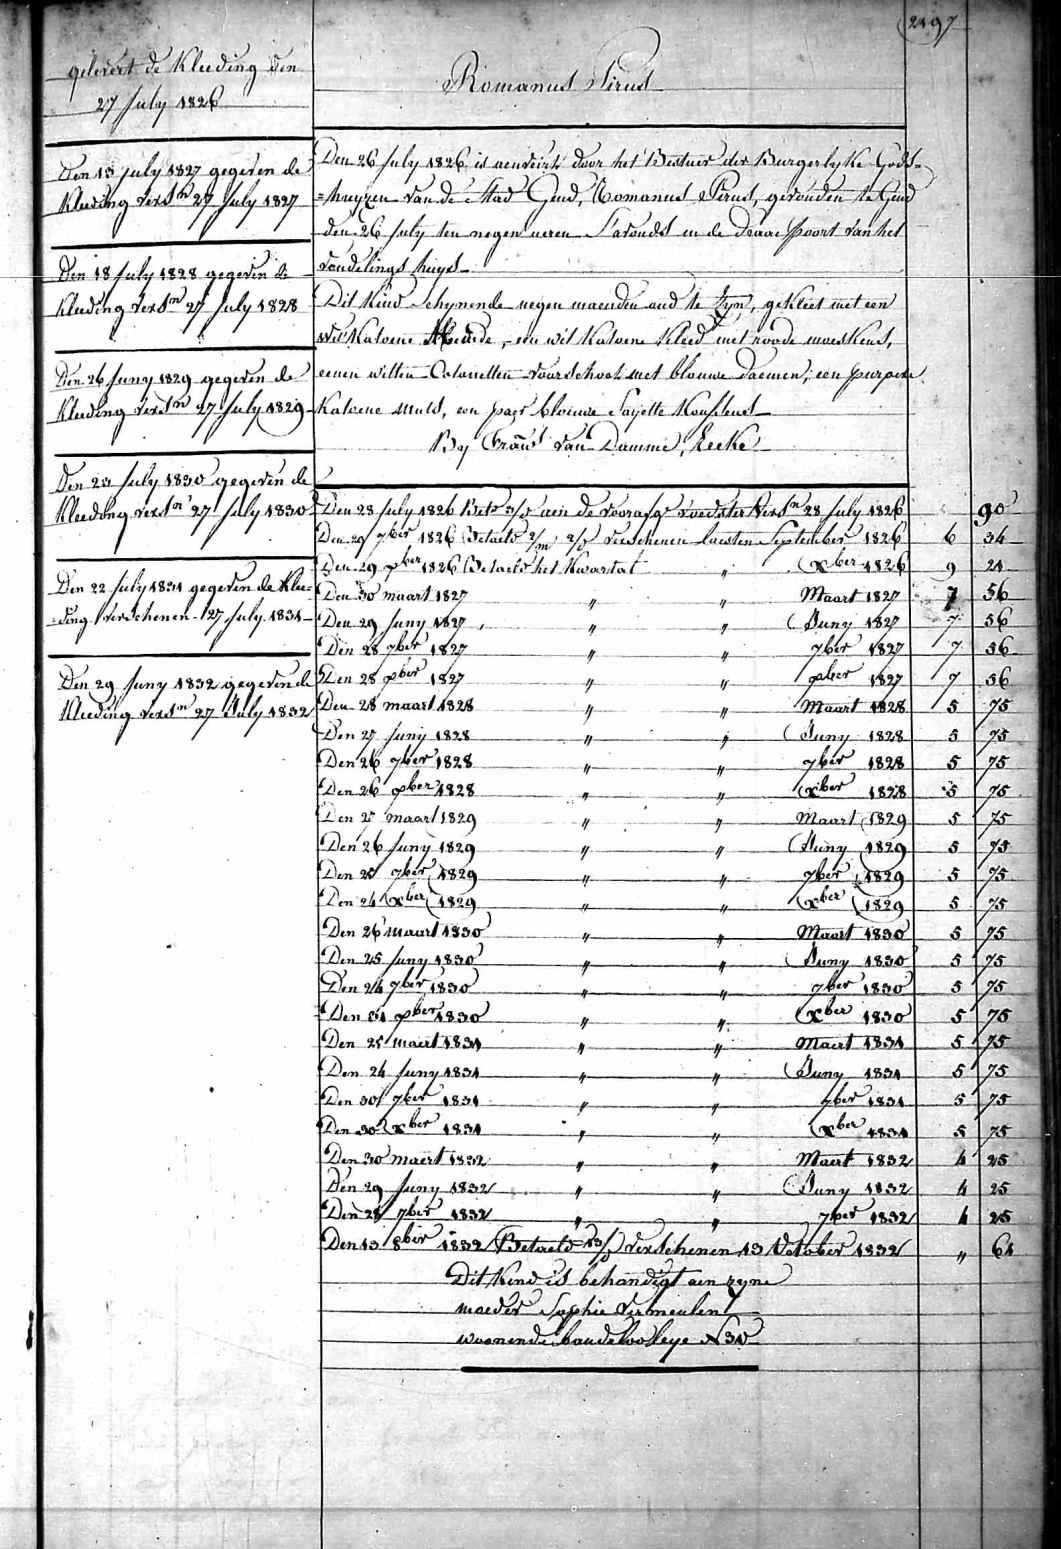 2197
gelevert de Kleeding den
27 July 1826
Den 13 July 1827 gegeven de
Kleeding verst.n 27 July 1827
Den 18 July 1828 gegeven de
Kleeding verst.n 27 July 1828
Den 26 Juny 1829 gegeven de
Kleeding verst.n 27 July 1829
Den 23 July 1830 gegeven de
Kleeding verst.n 27 July 1830
Den 22 July 1831 gegeven de Klee=
=ding verschenen 27 July 1831
Den 29 Juny 1832 gegeven de
Kleeding verst.n 27 July 1832
Romanus Pirus
Den 26 July 1826 is aenveirt door het Bestuer der Burgerlyke Gods=
=huyzen van de Stad Gend, Romanus Pirus, gevonden te Gend
den 26 July ten negen ueren S'avonds in de Draaepoort van het
vondelings huys
Dit Kind Schynende negen maenden oud te Zyn, gekleet met een
wit Katoene, een wit Katoene Kleed met roode moeskens,
eenen witten Cotonetten voorschoot met blauwe, een purpere
Katoene muts, een paer blauwe Sayette Kousjens
By Fran.s van Damme, Eecke
Den 28 July 1826 aen de voorn voedster verst.n 28 July 1826 90
Den 29 7ber 1826 Betaeld 2/m 2/d verschenen laesten September 1826 6 34
Den 29 xber 1826 Betaeld het Kwartal " Xber 1826 9 21
Den 30 maart 1827 " " Maart 1827 7 56
Den 29 Juny 1827 " " Juny 1827 7 56
Den 28 7ber 1827 " " 7ber 1827 7 56
Den 28 xber 1827 " " xber 1827 7 56
Den 28 maart 1828 " " Maart 1828 5 75
Den 27 Juny 1828 " " Juny 1828 5 75
Den 26 7ber 1828 " " 7ber 1828 5 75
Den 26 xber 1828 " " Xber 1828 5 75
Den 27 maart 1829 " " Maart 1829 5 75
Den 26 Juny 1829 " " Juny 1829 5 75
Den 25 7ber 1829 " " 7ber 1829 5 75
Den 24 Xber 1829 " " Xber 1829 5 75
Den 26 maart 1830 " " Maart 1830 5 75
Den 25 Juny 1830 " " Juny 1830 5 75
Den 24 7ber 1830 " " 7ber 1830 5 75
Den 31 xber 1830 " " Xber 1830 5 75
Den 25 maert 1831 " " Maert 1831 5 75
Den 24 Juny 1831 " " Juny 1831 5 75
Den 30 7ber 1831 " " 7ber 1831 5 75
Den 30 Xber 1831 " " Xber 1831 5 75
Den 30 maert 1832 " " Maert 1832 4 25
Den 29 Juny 1832 " " Juny 1832 4 25
Den 28 7ber 1832 " " 7ber 1832 4 25
Den 13 8ber 1832 Betaeld 13/d verschenen 13 October 1832 " 61
Dit Kind is behandigt aen zyne
moeder Sophie Vermeulen
woonende baudelooleye N 30